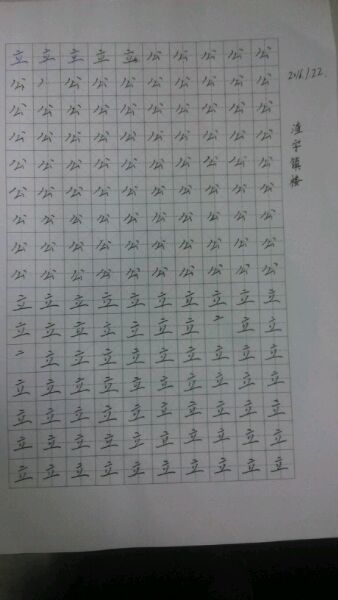 立立立立立公公公公公
公公公公公公公公公
公公公公公公公公公公
公公公公公公公公公公
公公公公公公公公公公
公公公公公公公公公公
公公公公公公公公公公
公公公公公公公公公公
公公公公公公公公公公
立立立立立立立立立立
立立立立立立立立立
立立立立立立立立立
立立立立立立立立立立
立立立立立立立立立立
立立立立立立立立立立
立立立立立立立立立立
2016.1.22.
渣字镇楼